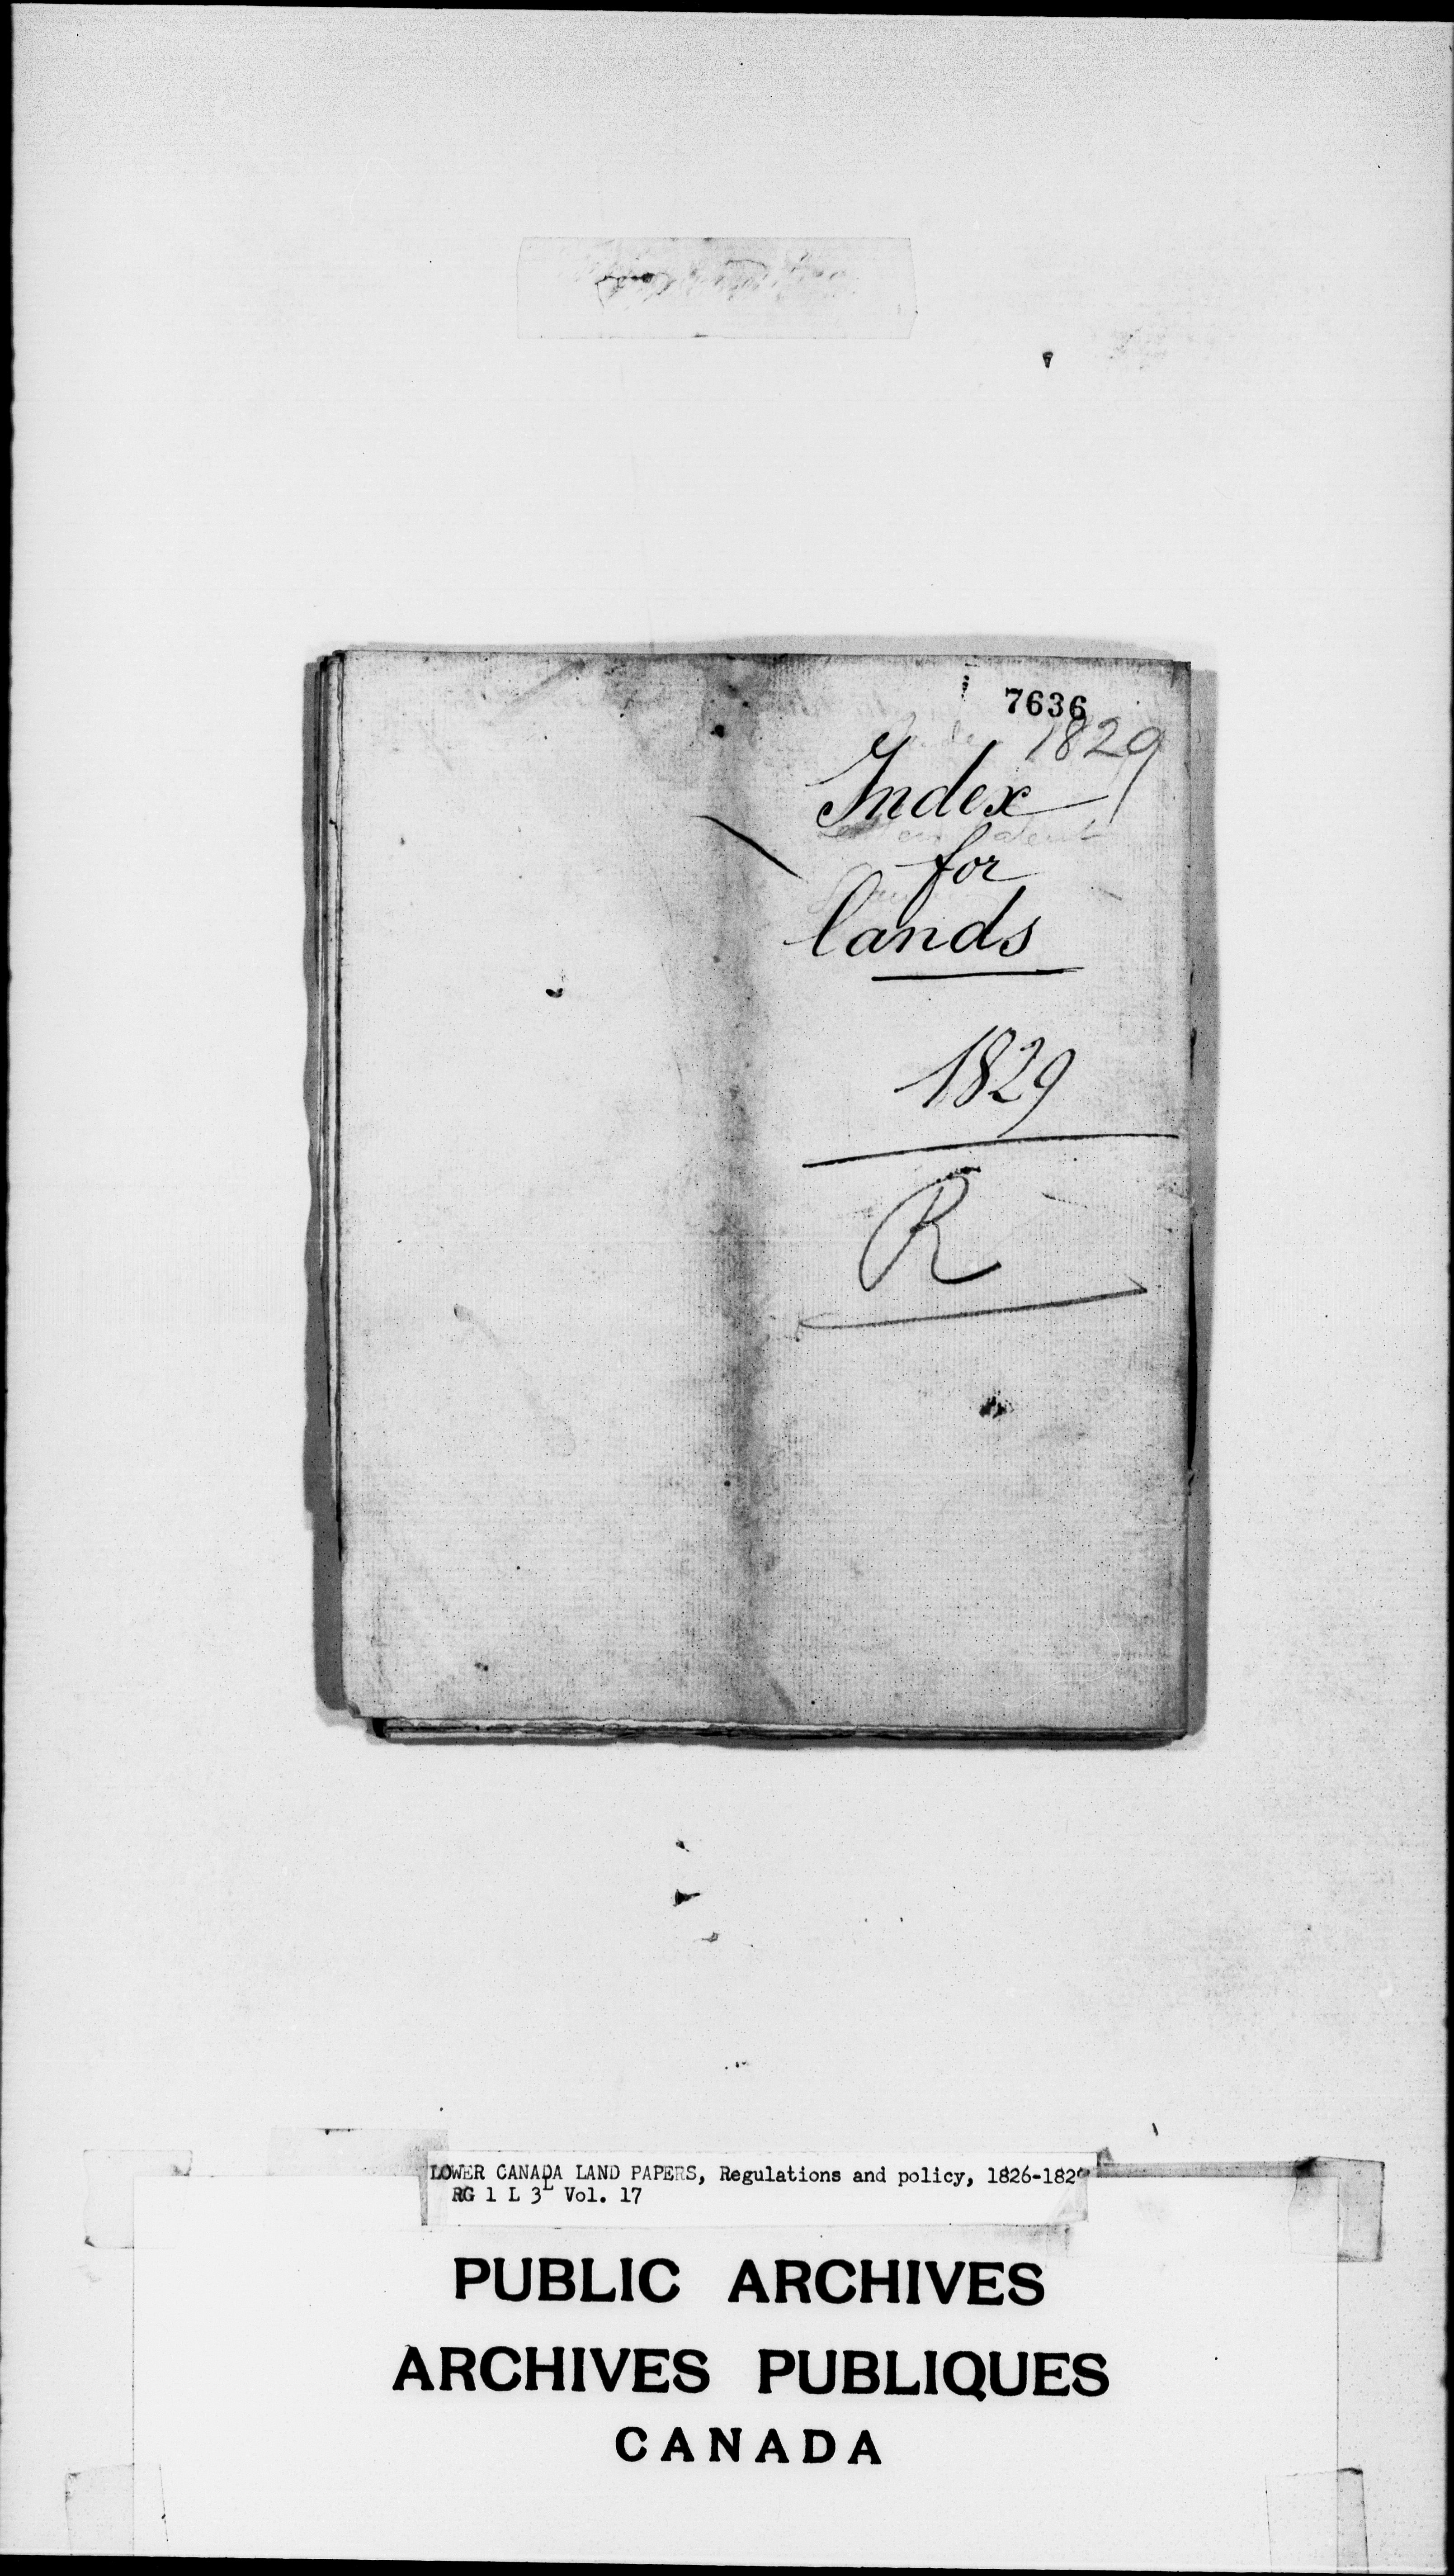 7636
1829
Index
for
lands
1829
R
LOWER CANADA LAND PAPERS, Regulations and policy, 1826-182
RG 1 L 3L Vol. 17
PUBLIC ARCHIVES
ARCHIVES PUBLIQUES
CANADA